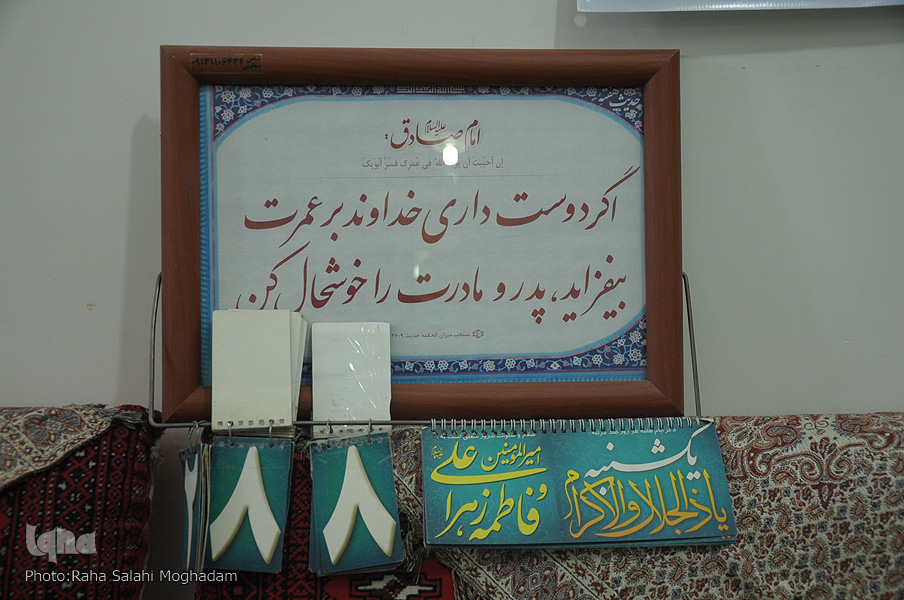 ۰۹۱۳۱۱۰۶۴۳۴
حدیث
امام صادق علیه السلام:
إن أحببت أن یزید الله فی عمرک فسر أبویک
اگر دوست داری خداوند بر عمرت
بیفزاید، پدر و مادرت را خوشحال کن
منتخب میزان الحکمه حدیث
۸ ۸
یکشنبه
یا ذالجلال والاکرام
امیرالمؤمنین علی
و فاطمه زهرا
iqna
Photo:Raha Salahi Moghadam